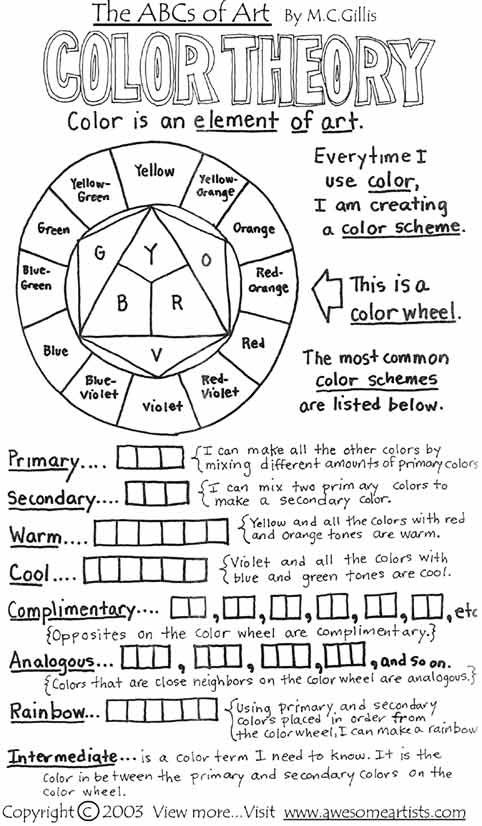 The ABCs of Art By M.C.Gillis
COLOR THEORY
Color is an element of art.
Yellow
Yellow-Green
Yellow-Orange
Green
Orange
Blue-Green
Red-Orange
Blue
Red
Blue-Violet
Red-Violet
Violet
G
Y
O
B
R
V
Everytime I
use color,
I am creating
a color scheme.
This is a
color wheel.
The most common
color schemes
are listed below.
Primary....
{I can make all the other colors by
mixing different amounts of primary colors
Secondary....
{I can mix two primary colors to
make a secondary color.
Warm....
{Yellow and all the colors with red
and orange tones are warm.
Cool....
{Violet and all the colors with
blue and green tones are cool.
Complimentary.... , , , , , , etc
{Opposites on the color wheel are complimentary.}
Analogous... , , , , and so on.
{Colors that are close neighbors on the color wheel are analogous.}
Rainbow...
{Using primary and secondary
colors placed in order from
the color wheel, I can make a rainbow
Intermediate... is a color term I need to know. It is the
color in between the primary and secondary colors on the
color wheel.
Copyright © 2003 View more...Visit www.awesomeartists.com